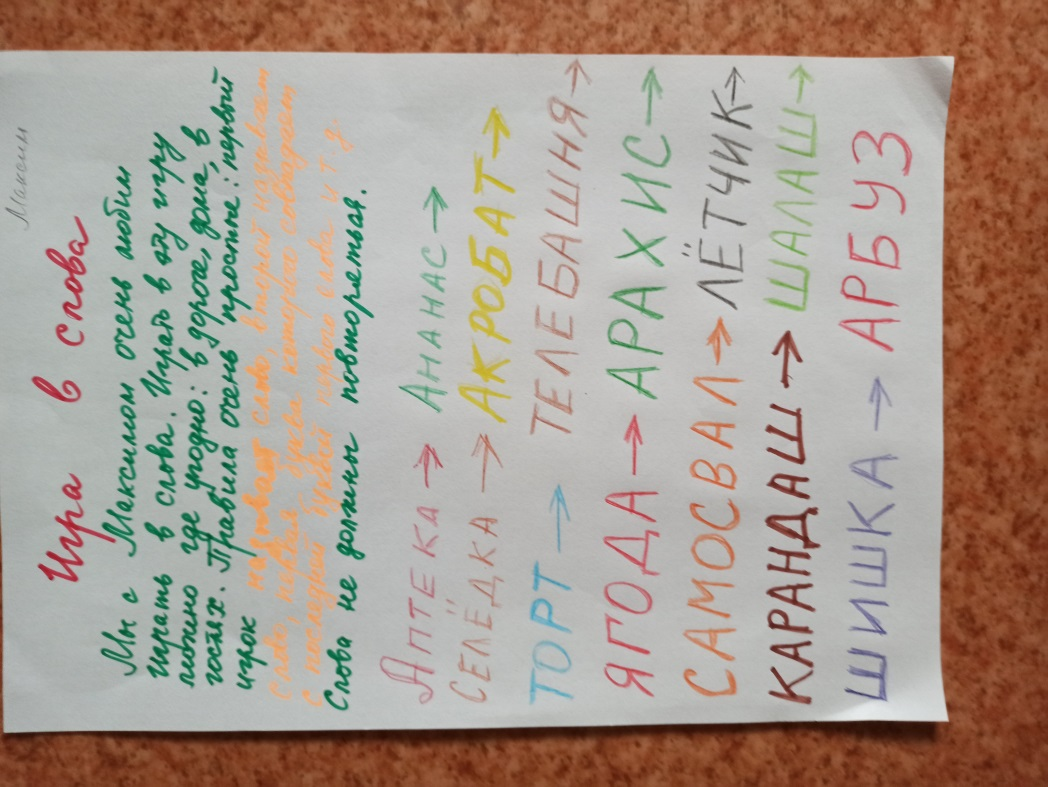 Максим
Игра в слова
Мы с Максимом очень любим
играть в слова. Играть в эту игру
можно где угодно: в дороге, дома, в
гостях. Правила очень простые: первый
игрок называет слово, второй называет
слово, первая буква которого совпадает
с последней буквой первого слова и т. д.
Слова не должны повторяться.
Аптека → Ананас →
Селёдка → Акробат →
Торт → Телебашня →
Ягода → Арахис →
Самосвал → Лётчик →
Карандаш → Шалаш →
Шишка → Арбуз